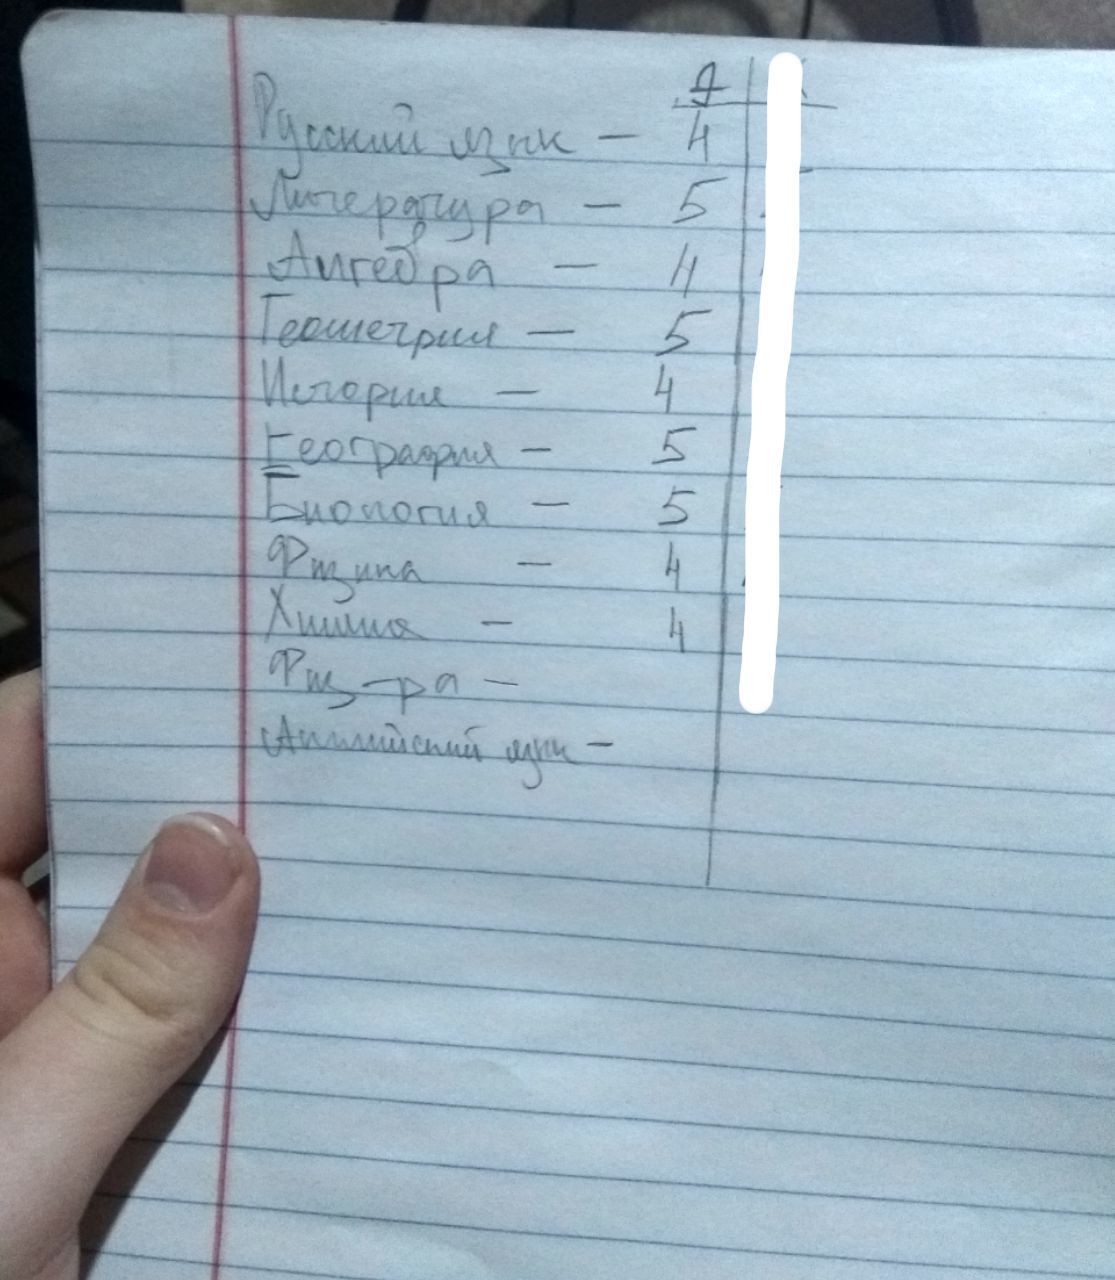 Я
Русский язык – 4
Литература – 5
Алгебра – 4
Геометрия – 5
История – 4
География – 5
Биология – 5
Физика – 4
Химия – 4
Физ-ра –
Английский язык –